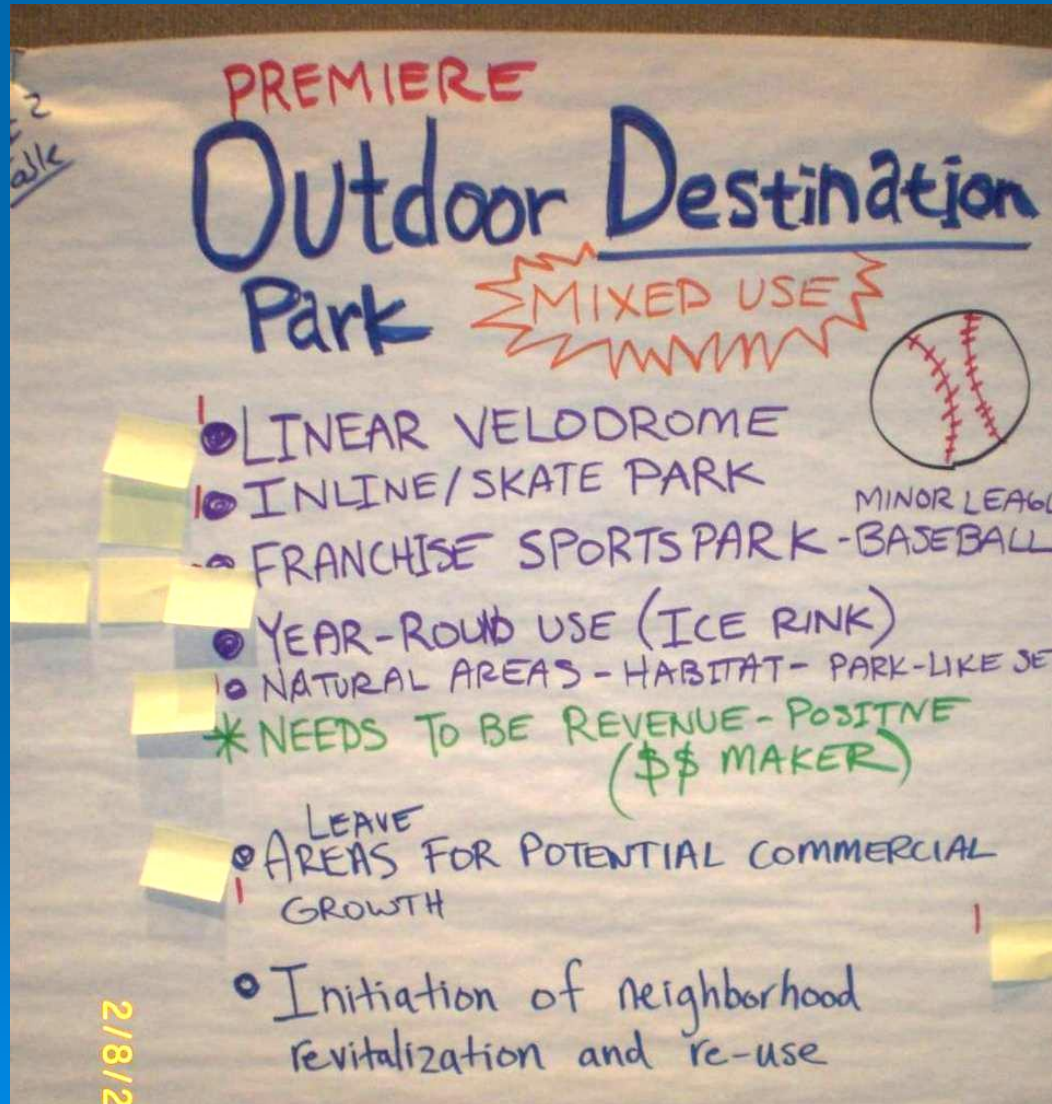 PREMIERE
Outdoor Destination
Park MIXED USE
LINEAR VELODROME
INLINE/SKATE PARK
MINOR
FRANCHISE SPORTS PARK - BASEBALL
YEAR-ROUND USE (ICE RINK)
NATURAL AREAS - HABITAT - PARK-LIKE
* NEEDS TO BE REVENUE-POSITIVE
($$ MAKER)
LEAVE
AREAS FOR POTENTIAL COMMERCIAL
GROWTH
Initiation of neighborhood
revitalization and re-use
2/8/2